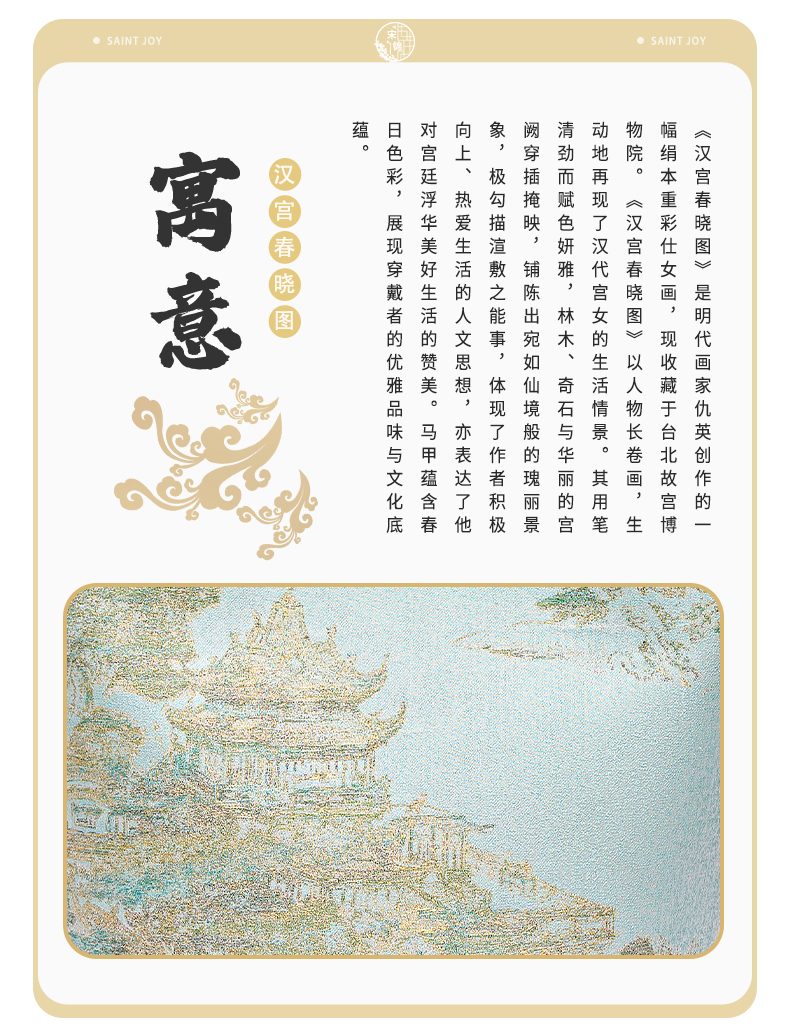 SAINT JOY
宋锦
SAINT JOY
《汉宫春晓图》是明代画家仇英创作的一
幅绢本重彩仕女画，现收藏于台北故宫博
物院。《汉宫春晓图》以人物长卷画，生
动地再现了汉代宫女的生活情景。其用笔
清劲而赋色妍雅，林木、奇石与华丽的宫
阙穿插掩映，铺陈出宛如仙境般的瑰丽景
象，极勾描渲敷之能事，体现了作者积极
向上、热爱生活的人文思想，亦表达了他
对宫廷浮华美好生活的赞美。马甲蕴含春
日色彩，展现穿戴者的优雅品味与文化底
蕴。
汉宫春晓图
寓意